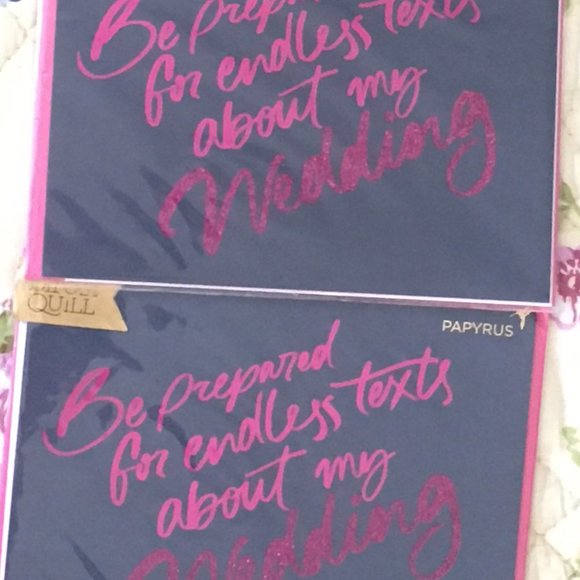 Be prepared
for endless texts
about my
Wedding
QUILL
PAPYRUS
Be prepared
for endless texts
about my
Wedding